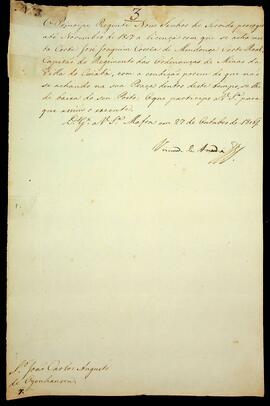 3
O Principe Regente Nosso Senhor
até Novembro de 1807 a licença com que se acha nes
ta Corte José Joaquim Correia de Mendonça Corte Real,
Capitão do Regimento das Ordenanças de Minas da
Villa do Cuiabá, com a condição porem de que não
se achando na sua Praça dentro deste tempo, se lhe
dê baixa do seu Posto. O que participo a V. S.ª para
que assim o execute.
D.s G.e a V. S.ª Mafra em 27 de Outubro de
Visconde de Anadia
S.r João Carlos Augusto
de Oyenhausen